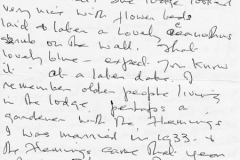 the lodge looked
very nice with flower beds
laid & later a lovely ceanothus
shrub on the wall. That
lovely blue - expect you know
it at a later date. I
remember older people living
in the lodge, perhaps a
gardener with the Flemings
I was married in 1933 &
the Flemings came that year